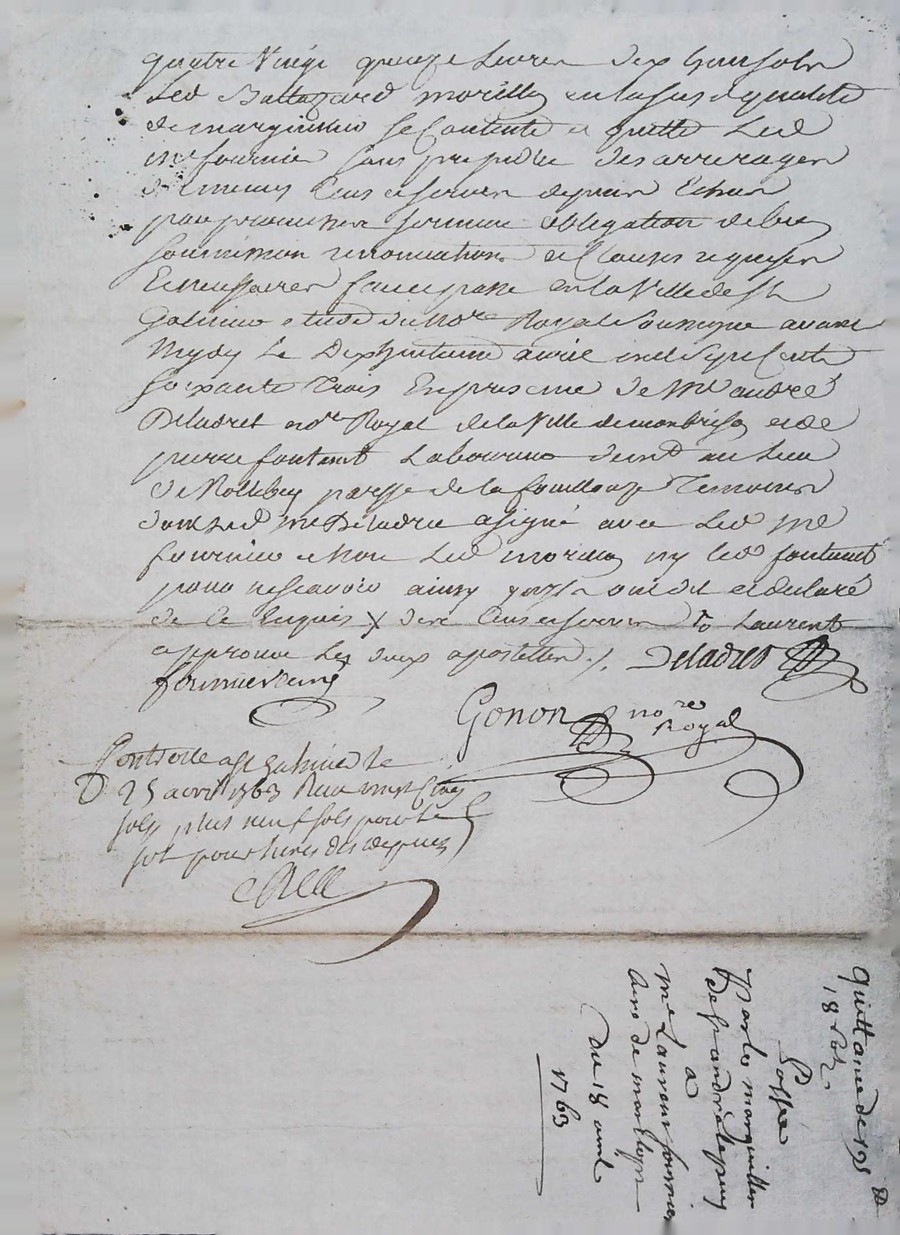 quatre Vingt quinze Livres dix huit sols
Led Baltazard morilla en lasusd qualité
de marguillier se Contente et quitte Led
me fournier sans prejudice des arrerages
Cens et servis depuis Echus
par promesse serment obligation de biens
soumission renonciations et Clauses requises
Et necessaires fait et passé en la Ville de St
Galmier etude du Nore Royal Soussigné avant
mydy Le Dixhuitieme avril mil sept Cents
soixante Trois En presence de Me andré
Deladret nore Royal de la Ville de montbrison et de
pierre fontanet Laboureur dud Lieu
de paroisse de la fouillouze Temoins
dont Led me Deladret a signé avec Led me
fournier et non Led morilla ny Led fontanet
pour ne scavoir ainsy qu'ils ont dit et declaré
de ce Enquis X dire Cens et servis Laurent
approuve Les deux apostilles ./. Deladret
fournier
Gonon nore
Royal
Controllé a St Galmier le
25 avril 1763 Reçu vingt Cinq
sols plus neuf sols pour le
sol pour livres
quittance de 195 tt
18 sols
Passé
par les marguilliers
de St andré le puy
a
me Laurent fournier
Curé de
Du 18 avril
1763